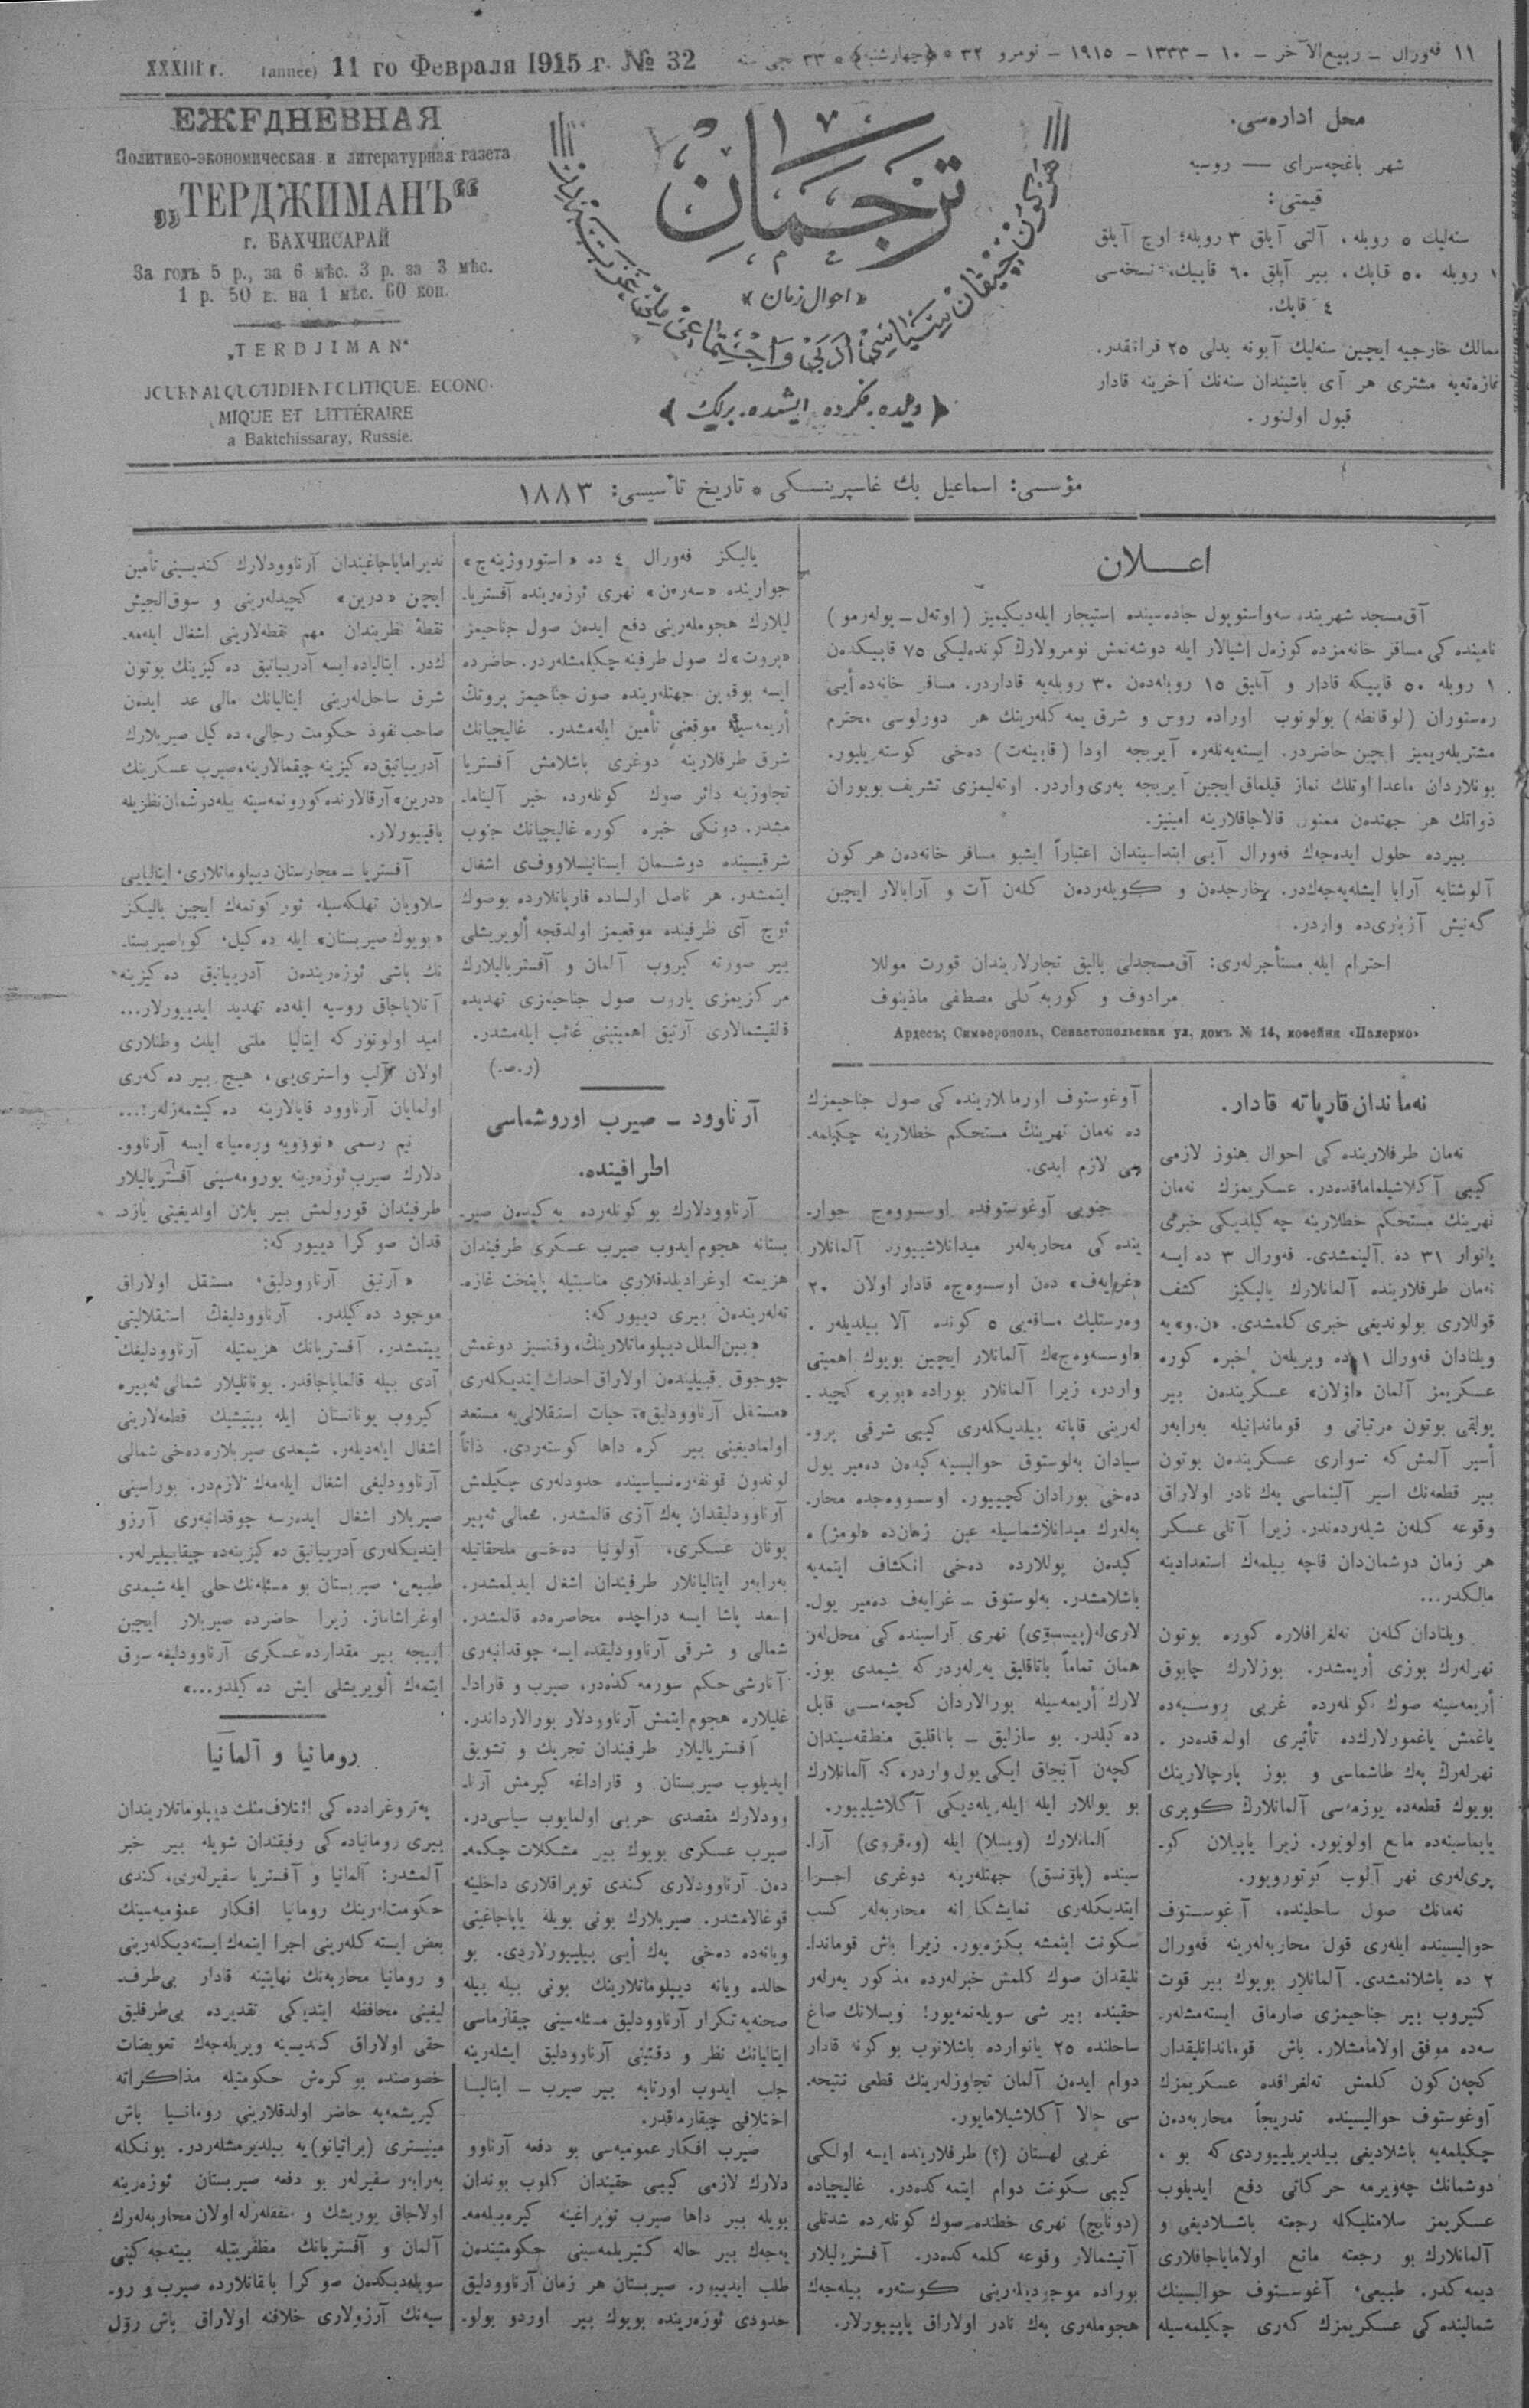 XXXIII г. (année) 11 го Февраля 1915 г. № 32
١١ فه‌ورال – ربيع‌الآخر – ١٠ – ١٣٣٣ – ١٩١٥ – نومرو ٣٢ ٥ (چهارشنبه) ٥ ٣٣ جی سنه
ЕЖЕДНЕВНАЯ
Политико-экономическая и литературная газета
„ТЕРДЖИМАНЪ“
г. БАХЧИСАРАЙ
За годъ 5 р., за 6 мѣс. 3 р. за 3 мѣс.
1 р. 50 к. на 1 мѣс. 60 коп.
„TERDJIMAN“
JOURNAL QUOTIDIEN POLITIQUE. ECONO-
MIQUE ET LITTÉRAIRE
a Baktchissaray, Russie.
ترجمان
«احوال زمان»
(دلده، فكرده، ايشده، برلك)
محل اداره‌سی.
شهر باغچه‌سرای — روسيه
قيمتی:
سنه‌ليك ٥ روبله، آلتی آيلق ٣ روبله؛ اوچ آيلق
١ روبله ٥٠ قاپك، بير آيلق ٦٠ قاپيك، نسخه‌سی
٤ قاپك.
ممالك خارجيه ايچين سنه‌ليك آبونه بدلی ٢٥ فرانقدر.
غازه‌ته‌يه مشتری هر آی باشيندان سنه‌نك آخرينه قادار
قبول اولنور.
مؤسسی: اسماعيل بك غاسپرينسكی * تاريخ تأسيسی: ١٨٨٣
اعـــلان
آق‌مسجد شهرينده سه‌واستوپول جاده‌سينده استيجار ايله‌ديكيميز (اوتەل – پولەرمو)
نامينده‌كی مسافر خانه‌مزده كوزه‌ل اشيالار ايله دوشەنمش نومرولارڭ كونده‌ليكی ٧٥ قاپيكدەن
١ روبله ٥٠ قاپيكه قادار و آيليق ١٥ روبله‌دەن ٣٠ روبله‌يه قاداردر. مسافر خانه‌ده أيی
رەستوران (لوقانطه) بولونوب اوراده روس و شرق يمه كله‌رينك هر دورلوسی محترم
مشتريلەريميز ايچين حاضردر. ايسته‌يەنلەره آيريجه اودا (قابينه‌ت) دەخی كوستەريليور.
بونلاردان ماعدا اوتلك نماز قيلماق ايچين آيريجه يەری واردر. اوتەليمزی تشريف بويوران
ذواتك هر جهتدەن ممنون قالاجاقلارينه امينيز.
بيرده حلول ايدەجەك فەورال آيی ابتداسيندان اعتباراً ايشبو مسافر خانه‌دەن هركون
آلوشتايه آرابا ايشله‌يەجەكدر. خارجدەن و كويلەردەن كلەن آت و آرابالار ايچين
گەنيش آزباری‌ده واردر.
احترام ايله مستأجرلەری: آق‌مسجدلی باليق تجارلاريندان قورت موللا
مرادوف و كوربه كلی مصطفی ماذينوف
Адресъ; Симферополь, Севастопольская ул, домъ № 14, кофейня «Палермо»
نەماندان قارپاته قادار.
نەمان طرفلارينده‌كی احوال هنوز لازمی
كيبی آكلاشيلماماقدەدر. عسكريمزك نەمان
نهرينك مستحكم خطلارينه چەكيلديكی خبری
يانوار ٣١ ده آلينمشدی. فەورال ٣ ده ايسه
نەمان طرفلارينده آلمانلارك ياليكز كشف
قوللاری بولونديغی خبری كلمشدی. «ن.و»يه
عسكريمز آلمان «اؤلان» عسكريندەن بير
بولقی بوتون مرتباتی و قوماندانيله بەرابەر
أسير آلمش كه سواری عسكريندەن بوتون
بير قطعه‌نك اسير آلينماسی پەك نادر اولاراق
وقوعه كلەن شيلەردەندر. زيرا آتلی عسكر
هر زمان دوشمان‌دان قاچه بيلمەك استعدادينه
مالكدر...
ويلنادان كلەن تەلغرافلاره كوره بوتون
نهرلەرك بوزی أريمشدر. بوزلارك چابوق
أريمەسينه صوك كونلەرده غربی روسيەده
ياغمش ياغمورلارك‌ده تأثيری اولمەقدەدر.
نهرلەرڭ پەك طاشماسی و بوز پارچالارينك
بويوك قطعەده يوزمەسی آلمانلارڭ كوپری
ياپماسينەده مانع اولونيور. زيرا ياپيلان كو-
پری‌لەری نهر آلوب كوتورويور.
نەمانك صول ساحلنده، آوغوستوف
حواليسينده ايلەری قول محاربەلەرينه فەورال
٢ ده باشلانمشدی. آلمانلار بويوك بير قوت
كتيروب بير جناحيمزی صارماق ايستەمشلەر-
سەده موفق اولامامشلار. باش قوماندانليقدان
كچەن كون كلمش تەلغرافده عسكريمزك
آوغوستوف حواليسينده تدريجاً محاربەدەن
چكيلمەيه باشلاديغی بيلديريلييوردی كه بو،
دوشمانك چەويرمه حركاتی دفع ايديلوب
عسكريمز سلامتليكله رجعته باشلاديغی و
آلمانلارك بو رجعته مانع اولامایاجاقلاری
ديمەكدر. طبيعی، آغوستوف حواليسينك
شمالينده‌كی عسكريمزك كەری چكيلمەسيله
آوغوستوف اورمانلارينده‌كی صول جناحيمزك
ده نەمان نهرينك مستحكم خطلارينه چكيلمە-
سی لازم ايدی.
جنوبی آوغوستوفده اوسسووەچ جوار-
ينده‌كی محاربەلەر ميدانلاشييور. آلمانلار
«غرايەف» دەن اوسسووەچه قادار اولان ٢٠
وەرستليك مسافەيی ٥ كونده آلا بيلديلەر.
«اوسسەوەچ»ڭ آلمانلار ايچين بويوك اهميتی
واردر، زيرا آلمانلار بوراده «بوبر» كچيد-
لەرينی قاپاته بيلديكلەری كيبی شرقی پرو-
سيادان بەلوستوق حواليسينه كيدەن دەمير يول
دەخی بورادان كچييور. اوسسووەچده محار-
بەلەرك ميدانلاشماسيله عين زمان‌ده «لومز»ه
كيدەن يوللارده دەخی انكشاف ايتمەيه
باشلامشدر. بەلوستوق – غرايەف دەمير يول-
لاری‌له (بيسسوی) نهری آراسينده‌كی محللەر
همان تماماً باتاقليق يەرلەردر كه شيمدی بوز-
لارك أريمەسيله بورالاردان كچمەسی قابل
دەكلدر. بو سازليق – باتاقليق منطقەسيندان
كچەن آنجاق ايكی يول واردر، كه آلمانلارك
بو يوللار ايله ايلەريلەديكی آكلاشيليور.
آلمانلارك (ويسلا) ايله (وەقروی) آرا-
سينده (پلوتسق) جهتلەرينه دوغری اجرا
ايتديكلەری نمايشكارانه محاربەلەر كسب
سكونت ايتمشه بكزەيور. زيرا باش قوماندا-
نليقدان صوك كلمش خبرلەرده مذكور يەرلەر
حقينده بير شی سويلەنمەيور؛ ويسلانك صاغ
ساحلنده ٢٥ يانوارده باشلانوب بو كونه قادار
دوام ايدەن آلمان تجاوزلەرينك قطعی نتيجه-
سی حالا آكلاشيلمايور.
غربی لهستان (؟) طرفلارينده ايسه اولكی
كيبی سكونت دوام ايتمەكدەدر. غاليچياده
(دونايچ) نهری خطنده صوك كونلەرده شدتلی
آتيشمالار وقوعه كلمەكدەدر. آفستريليلار
بوراده موجوديتلەرينی كوستەره بيلەجەك
هجوملەری پەك نادر اولاراق ياپيیورلار.
ياليكز فەورال ٤ ده «استوروژينەچ»
جوارينده «سەرەت» نهری ئوزەرينده آفستريا-
ليلارك هجوملەرينی دفع ايدەن صول جناحيمز
«پروت»ك صول طرفينه چكلمشلەردر. حاضرده
ايسه بوقوين جهتلەرينده صول جناحيمز پروتك
أريمەسيله موقعنی تأمين ايله‌مشدر. غاليچيانك
شرق طرفلارينه دوغری باشلامش آفستريا
تجاوزينه دائر صوك كونلەرده خبر آلينما-
مشدر. دونكی خبره كوره غاليچيانك جنوب
شرقيسينده دوشمان ايستانيسلاووف‌ی اشغال
ايتمشدر. هر ناصل اولساده قارپاتلارده بو صوك
ئوچ آی ظرفينده موقعيمز اولدقجه ألويريشلی
بير صورته كيروب آلمان و آفسترياليلارك
مركزيمزی ياروب صول جناحيمزی تهديده
قالقيشمالاری آرتيق اهميتينی غائب ايله‌مشدر.
(ر.ص.)
آرناوود – صيرب اوروشماسی
اطرافينده.
آرناوودلارك بو كونلەرده يەكيدەن صير-
بستانه هجوم ايدوب صيرب عسكری طرفيندان
هزيمته اوغراديلدقلاری مناسبتيله پايتخت غازە-
تەلەريندەن بيری دييوركه:
«بين‌الملل ديپلوماتلارينك، وقتسيز دوغمش
چوجوق قبيلندەن اولاراق احداث ايتديكلەری
«مستقل آرناوودليق»ڭ حيات استقلاليه مستعد
اولماديغينی بير كره داها كوستەردی. ذاتاً
لوندون قونفەرەنسياسينده حدودلەری چكيلمش
آرناوودليقدان پەك آزی قالمشدر. شمالی ئەپير
يونان عسكری، آولونيا دەخی ملحقاتيله
بەرابەر ايتاليانلار طرفيندان اشغال ايديلمشدر.
أسعد پاشا ايسه دراچده محاصرەده قالمشدر.
شمالی و شرقی آرناوودليقده ايسه چوقدانبەری
آنارشی حكم سورمەكدەدر، صيرب و قارادا-
غليلاره هجوم ايتمش آرناوودلار بورالارداندر.
آفسترياليلار طرفيندان تحريك و تشويق
ايديلوب صيربستان و قاراداغه كيرمش آرنا-
وودلارك مقصدی حربی اولمايوب سياسی‌در.
صيرب عسكری بويوك بير مشكلات چكمە-
دەن آرناوودلاری كندی توپراقلاری داخلينه
قوغالامشدر. صيربلارك بونی بويله ياپاجاغينی
ويانەده دەخی پەك أيی بيليیورلاردی. بو
حالده ويانه ديپلوماتلارينك بونی بيله بيله
صحنەيه تكرار آرناوودليق مسئلەسينی چيقارماسی
ايتاليانك نظر و دقتينی آرناوودليق ايشلەرينه
جلب ايدوب اورتايه بير صيرب – ايتاليا
اختلافی چيقارماقدر.
صيرب افكار عموميەسی بو دفعه آرناوو
دلارك لازمی كيبی حقيندان كلوب بوندان
بويله بير داها صيرب توپراغينه كيرەبيلمه-
يەجەك بير حاله كتيريلمەسينی حكومتيندەن
طلب ايدييور. صيربستان هر زمان آرناوودليق
حدودی ئوزەرينده بويوك بير اوردو بولو-
نديرامایاجاغيندان آرناوودلارك كنديسينی تأمين
ايچن «درين» كچيدلەرينی و سوق‌الجيش
نقطۀ نظريندان مهم نقطەلارينی اشغال ايلەمە-
لدر. ايتالياده ايسه آدرياتيق دەكيزينك بوتون
شرق ساحل‌لەرينی ايتاليانك مالی عد ايدەن
صاحب نفوذ حكومت رجالی، دەكيل صيربلارك
آدرياتيق دەكيزينه چيقمالارينه، صيرب عسكرينك
«درين» آرقالارنده كورونمەسينه بيله دوشمان نظريله
باقييورلار.
آفستريا – مجارستان ديپلوماتلاری، ايتاليايی
سلاويان تهلكەسيله ئوركوتمەك ايچين ياليكز
«بويوك صيربستان» ايله دەكيل، كويا صيربستا-
نك باشی ئوزەريندەن آدرياتيق دەكيزينه
آتلاياجاق روسيه ايلەده تهديد ايدييورلار...
اميد اولونوركه ايتاليا ملتی ايلك وطنلاری
اولان آلپ و استری‌يی، هيچ بير دەكەری
اولمايان آرناوود قايالارينه دەكيشمەزلەر؛...
نيم رسمی «نوۆويه ورەميا» ايسه آرناوو-
دلارك صيرب ئوزەرينه يورومەسينی آفسترياليلار
طرفيندان قورولمش بير پلان اولديغينی ياز-
قدان صوكرا دييوركه:
«آرتيق آرناوودليق، مستقل اولاراق
موجود دەكيلدر. آرناوودليغڭ استقلاليتی
بيتمشدر. آفستريانك هزيمتيله آرناوودليغك
آدی بيله قالماياجاقدر. يونانليلار شمالی ئەپيره
كيروب يونانستان ايله بيتيشيك قطعەلارينی
اشغال ايلەديلەر. شيمدی صيربلاره دەخی شمالی
آرناوودليغی اشغال ايلەمەك لازم‌در. بوراسينی
صيربلار اشغال ايدەرسه چوقدانبەری آرزو
ايتديكلەری آدرياتيق دەكيزينەده چيقابيليرلەر.
طبيعی، صيربستان بو مسئلەنك حلی ايله شيمدی
اوغراشاماز. زيرا حاضرده صيربلار ايچين
اييجه بير مقدارده عسكری آرناوودليغه سوق
ايتمەك ألويريشلی ايش دەكيلدر...»
رومانيا و آلمانيا
پەتروغرادده‌كی ائتلاف‌مثلث ديپلوماتلاريندان
بيری رومانياده‌كی رفيقندان شويله بير خبر
آلمشدر: آلمانيا و آفستريا سفيرلەری، كندی
حكومت‌لەرينك رومانيا افكار عموميەسينك
بعض ايستەكلەرينی اجرا ايتمەك ايستەديكلەرينی
و رومانيا محاربەنك نهايتينه قادار بی‌طرف-
ليغنی محافظه ايتديكی تقديرده بی‌طرفليق
حقی اولاراق كنديسينه ويريلەجەك تعويضات
خصوصنده بوكرەش حكومتيله مذاكراته
كيريشمەيه حاضر اولدقلارينی رومانيا باش
مينيستری (براتيانو)يه بيلديرمشلەردر. بونكله
بەرابەر سفيرلەر بو دفعه صيربستان ئوزەرينه
اولاجاق يوريشك و متفقلەرله اولان محاربەلەرك
آلمان و آفستريانك مظفريتيله بيتەجەكينی
سويلەديكدەن صوكرا بالقانلارده صيرب و رو-
سيەنك آرزولاری خلافنه اولاراق باش رۆل